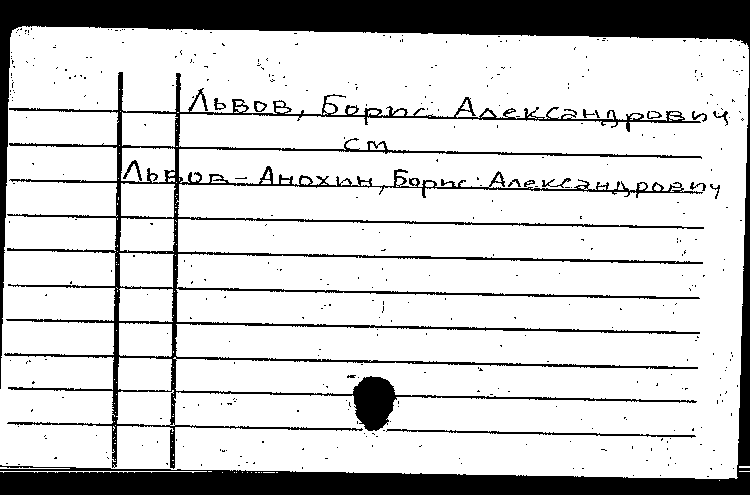 Львов, Борис Александрович
см
Львов-Анохин, Борис Александрович